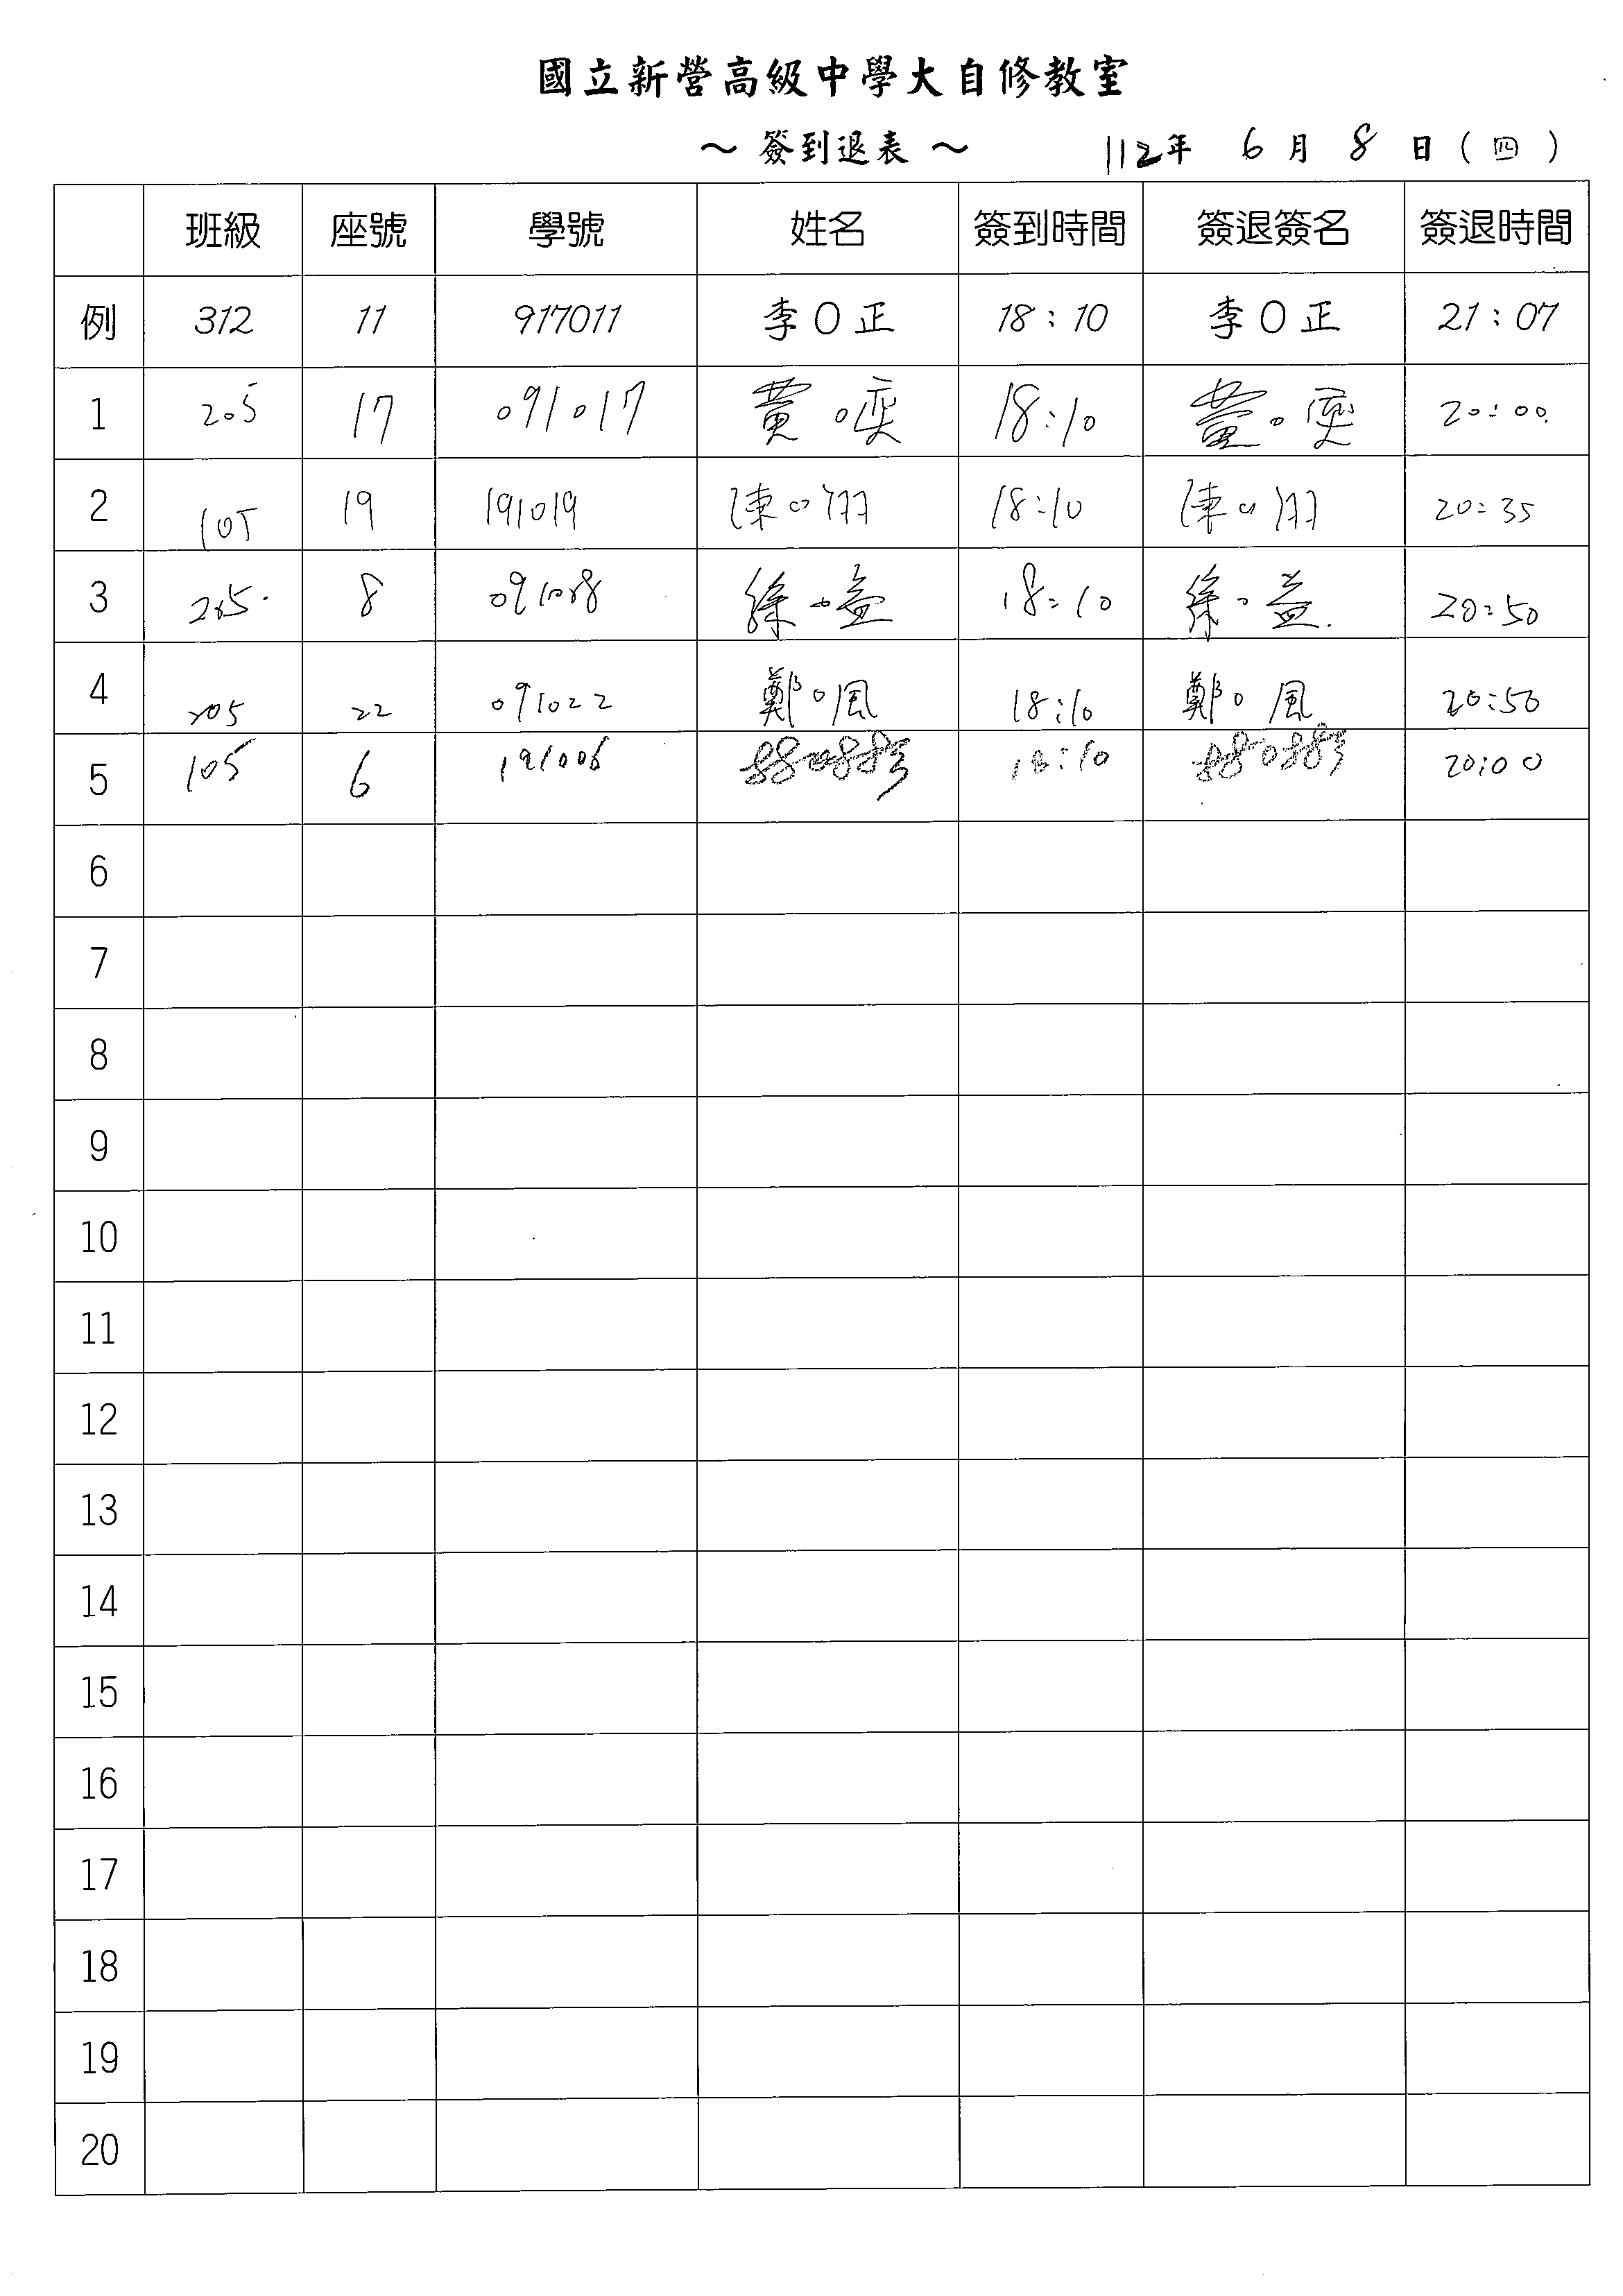 國立新營高級中學大自修教室
～ 簽到退表 ～ 112年 6月 8日(四)
班級 座號 學號 姓名 簽到時間 簽退簽名 簽退時間
例 312 11 917011 李O正 18:10 李O正 21:07
1 205 17 091017 黃○奕 18:10 黃○奕 20:00
2 105 19 191019 陳○翔 18:10 陳○翔 20:35
3 205 8 091008 徐○益 18:10 徐○益 20:50
4 205 22 091022 鄭○風 18:10 鄭○風 20:50
5 105 6 191006 18:10 20:00
6
7
8
9
10
11
12
13
14
15
16
17
18
19
20